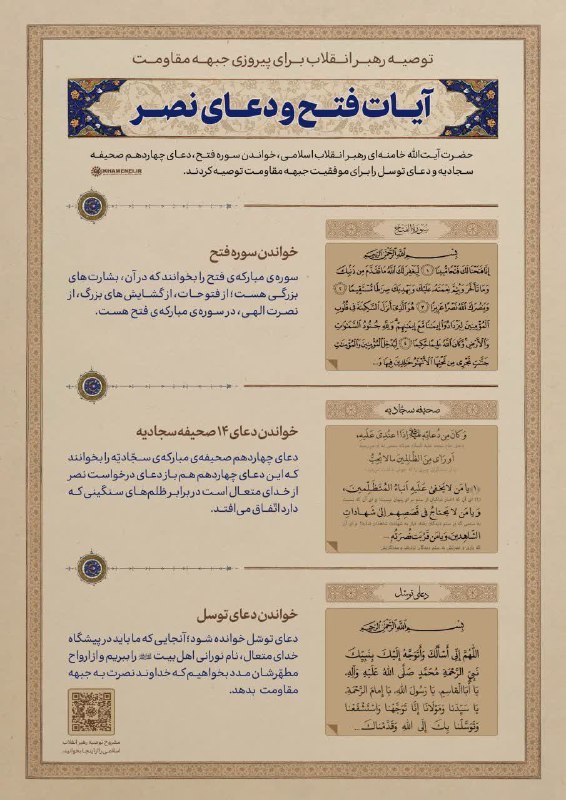 توصیه رهبر انقلاب برای پیروزی جبهه مقاومت
آیات فتح و دعای نصر
حضرت آیت‌الله خامنه‌ای رهبر انقلاب اسلامی، خواندن سوره فتح، دعای چهاردهم صحیفه
سجادیه و دعای توسل را برای موفقیت جبهه مقاومت توصیه کردند.
KHAMENEI.IR
سورة الفتح
بِسْمِ اللَّهِ الرَّحْمَنِ الرَّحِيمِ
إِنَّا فَتَحْنَا لَكَ فَتْحًا مُبِينًا ﴿۱﴾ لِيَغْفِرَ لَكَ اللَّهُ مَا تَقَدَّمَ مِنْ ذَنْبِكَ
وَمَا تَأَخَّرَ وَيُتِمَّ نِعْمَتَهُ عَلَيْكَ وَيَهْدِيَكَ صِرَاطًا مُسْتَقِيمًا ﴿۲﴾
وَيَنْصُرَكَ اللَّهُ نَصْرًا عَزِيزًا ﴿۳﴾ هُوَ الَّذِي أَنْزَلَ السَّكِينَةَ فِي قُلُوبِ
الْمُؤْمِنِينَ لِيَزْدَادُوا إِيمَانًا مَعَ إِيمَانِهِمْ وَلِلَّهِ جُنُودُ السَّمَاوَاتِ
وَالْأَرْضِ وَكَانَ اللَّهُ عَلِيمًا حَكِيمًا ﴿۴﴾ لِيُدْخِلَ الْمُؤْمِنِينَ وَالْمُؤْمِنَاتِ
جَنَّاتٍ تَجْرِي مِنْ تَحْتِهَا الْأَنْهَارُ خَالِدِينَ فِيهَا وَ...
خواندن سوره فتح
سوره‌ی مبارکه‌ی فتح را بخوانند که در آن، بشارت‌های
بزرگی هست؛ از فتوحات، از گشایش‌های بزرگ، از
نصرت الهی، در سوره‌ی مبارکه‌ی فتح هست.
صحیفه سجادیه
وَ كَانَ مِنْ دُعَائِهِ إِذَا اعْتُدِيَ عَلَيْهِ،
أَوْ رَأَى مِنَ الظَّالِمِينَ مَا لَا يُحِبُّ
﴿۱﴾ يَا مَنْ لَا يَخْفَى عَلَيْهِ أَنْبَاءُ الْمُتَظَلِّمِينَ،
وَ يَا مَنْ لَا يَحْتَاجُ فِي قَصَصِهِمْ إِلَى شَهَادَاتِ
الشَّاهِدِينَ، وَ يَا مَنْ قَرُبَتْ نُصْرَتُهُ ...
خواندن دعای ۱۴ صحیفه سجادیه
دعای چهاردهم صحیفه‌ی مبارکه‌ی سجّادیّه را بخوانند
که این دعای چهاردهم هم باز دعای درخواست نصر
از خدای متعال است در برابر ظلم‌های سنگینی که
دارد اتّفاق می‌افتد.
دعای توسل
بِسْمِ اللَّهِ الرَّحْمَنِ الرَّحِيمِ
اللَّهُمَّ إِنِّي أَسْأَلُكَ وَأَتَوَجَّهُ إِلَيْكَ بِنَبِيِّكَ
نَبِيِّ الرَّحْمَةِ مُحَمَّدٍ صَلَّى اللَّهُ عَلَيْهِ وَآلِهِ،
يَا أَبَا الْقَاسِمِ، يَا رَسُولَ اللَّهِ، يَا إِمَامَ الرَّحْمَةِ،
يَا سَيِّدَنَا وَمَوْلَانَا إِنَّا تَوَجَّهْنَا وَاسْتَشْفَعْنَا
وَتَوَسَّلْنَا بِكَ إِلَى اللَّهِ وَقَدَّمْنَاكَ ...
خواندن دعای توسل
دعای توسّل خوانده شود؛ آنجایی که ما باید در پیشگاه
خدای متعال، نام نورانی اهل‌بیت را ببریم و از ارواح
مطهّرشان مدد بخواهیم که خداوند نصرت به جبهه
مقاومت بدهد.
مشروح توصیه رهبر انقلاب
اسلامی را از اینجا بخوانید.